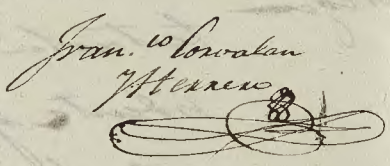 Fran.co Corvalan
y Herrera